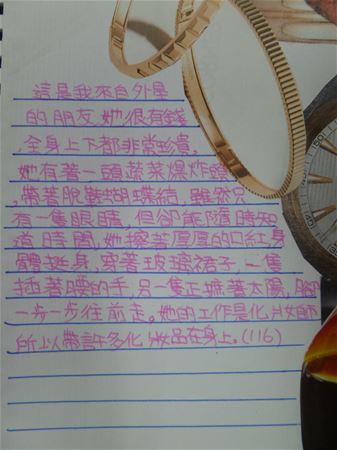 這是我來自外星
的朋友,她很有錢
,全身上下都非常珍貴,
她有著一頭蔬菜爆炸頭
,帶著脫雞蝴蝶結,雖然只
有一隻眼睛,但卻能隨時知
道時間,她擦著厚厚的口紅,身
體挺身,穿著玻璃裙子,一隻
插著腰的手,另一隻正撫著太陽,腳
一步一步往前走。她的工作是化妝師
所以帶許多化妝品在身上。(116)